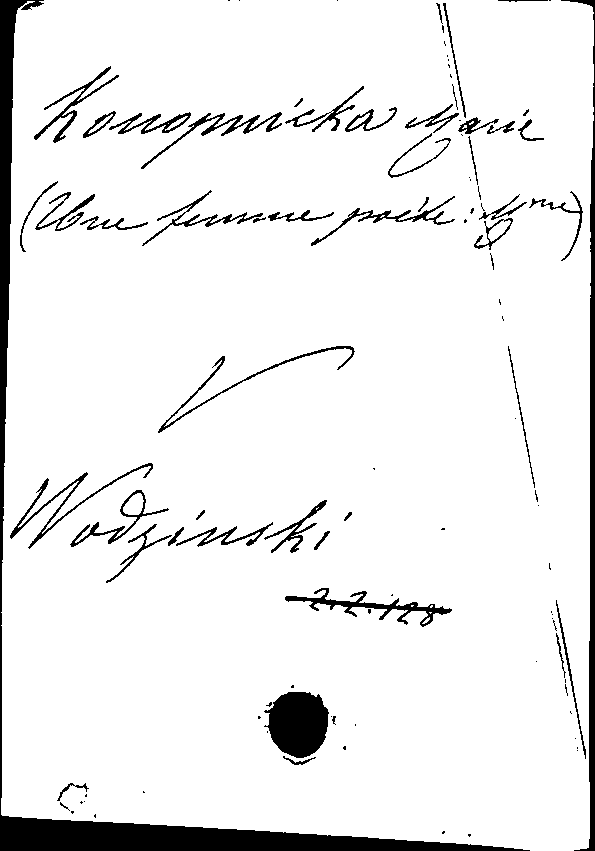 Konopnicka Marie
(Une femme poète: Mme)
V
Wodzinski
2.2.128